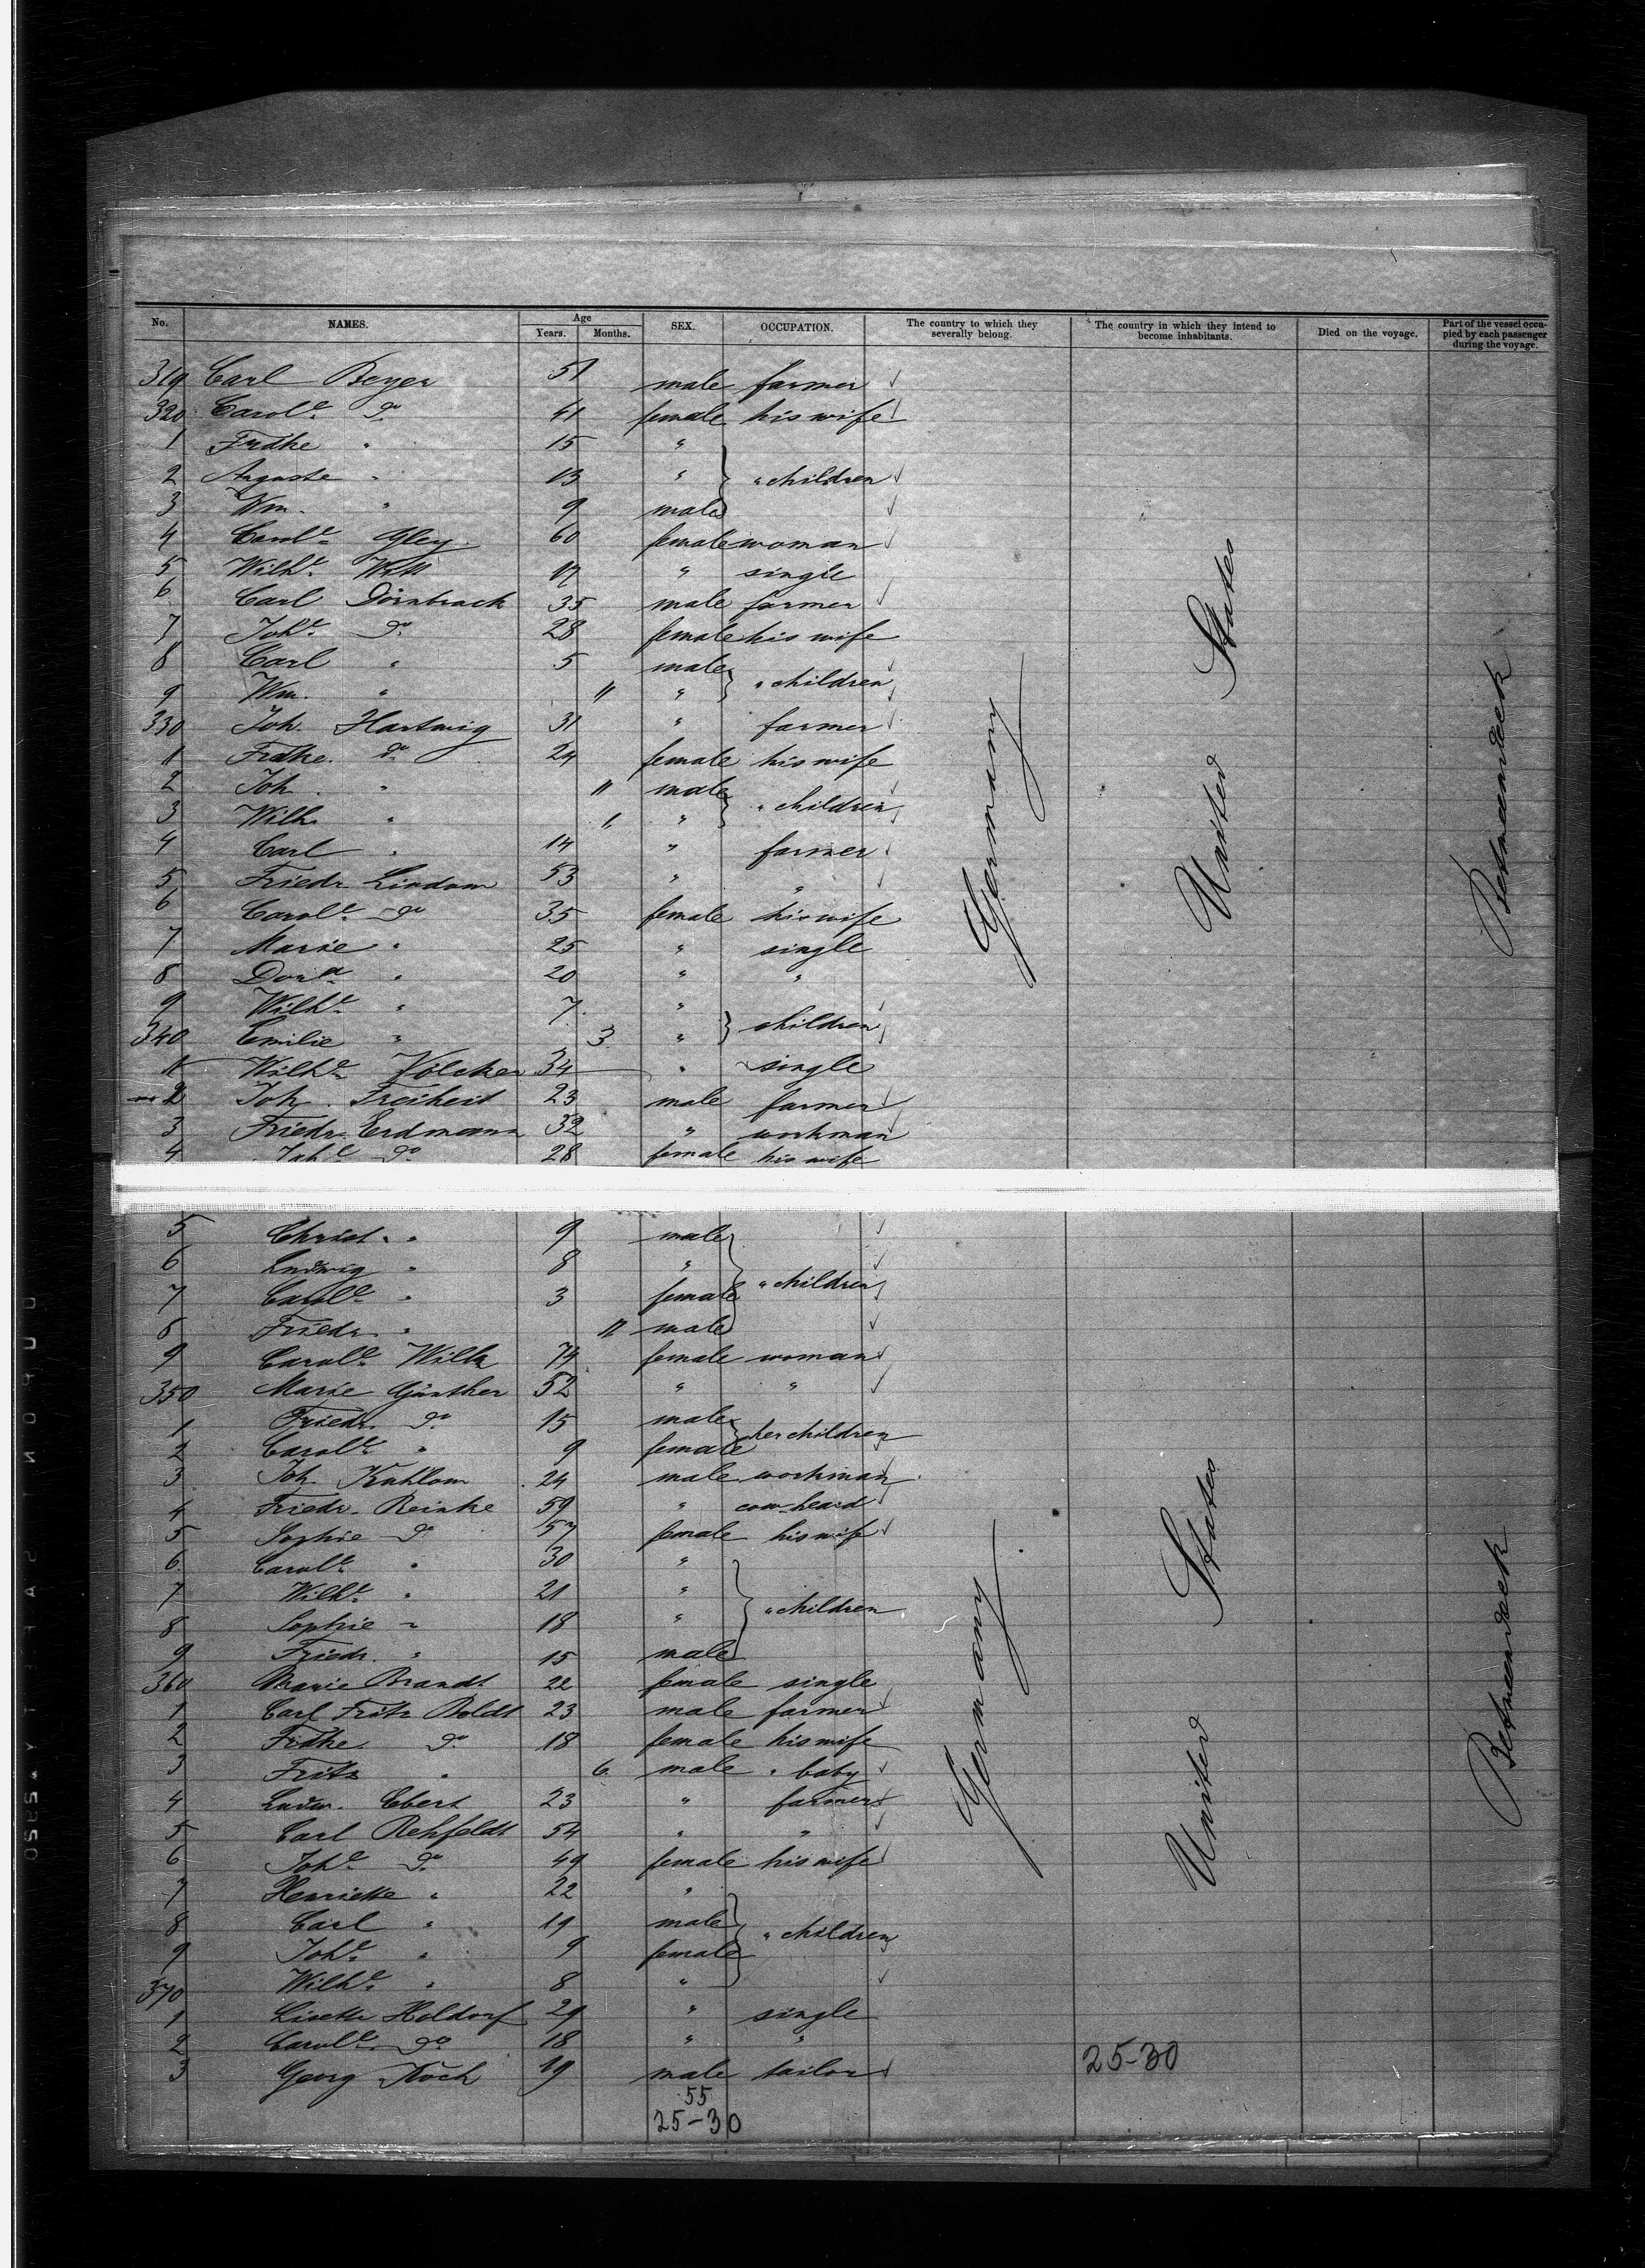 No. NAMES. Age Years. Months. SEX. OCCUPATION. The country to which they severally belong. The country in which they intend to become inhabitants. Died on the voyage. Part of the vessel occupied by each passenger during the voyage.
319 Carl Beyer 51 male farmer
320 Carole do 41 female his wife
1 Frdke " 15 "
2 Auguste " 13 " " children
3 Wm. " 9 male
4 Carole Gley 60 female woman
5 Wilhe 17 " single
6 Carl Dörnbrack 35 male farmer
7 Johe do 28 female his wife
8 Carl " 5 male
9 Wm. " 11 " " children
330 Joh. Hartwig 31 " farmer
1 Frdke. do 24 female his wife
2 Joh. " 11 male
3 Wilh. " " " children
4 Carl " 14 " farmer
5 Friedr. Lindow 53 " "
6 Carole do 35 female his wife
7 Marie " 25 " single
8 Dora " 20 " "
9 Wilhe " 7 "
340 Emilie " 3 " children
1 Wilhe Völcker 34 " single
2 Joh. Freiheit 23 male farmer
3 Friedr. Erdmann 32 " workman
4 Johe do 28 female his wife
5 Christ. " 9 male
6 Ludwig " 8 "
7 Carole " 3 female " children
8 Friedr. " 11 male
9 Carole Wilk 74 female woman
350 Marie Günther 52 " "
1 Friedr. do 15 male
2 Carole " 9 female her children
3 Joh. Kuhlow 24 male workman
4 Friedr. Reinke 59 " cow-heard
5 Sophie do 57 female his wife
6 Carole " 30 "
7 Wilhe " 21 "
8 Sophie " 18 " " children
9 Friedr. " 15 male
360 Marie Brandt 22 female single
1 Carl Fritz Boldt 23 male farmer
2 Frdke do 18 female his wife
3 Fritz " 6 male " baby
4 Ludw. Ebert 23 " farmer
5 Carl Rehfeldt 54 " "
6 Johe do 49 female his wife
7 Henriette " 22 "
8 Carl " 19 male
9 Johe " 9 female " children
370 Wilhe " 8 "
1 Lisette Holdorf 29 " single
2 Carole do 18 " "
3 Georg Koch 19 male tailor
55
25-30
Germany
United States
Betweendeck
Germany
United States
Betweendeck
25-30